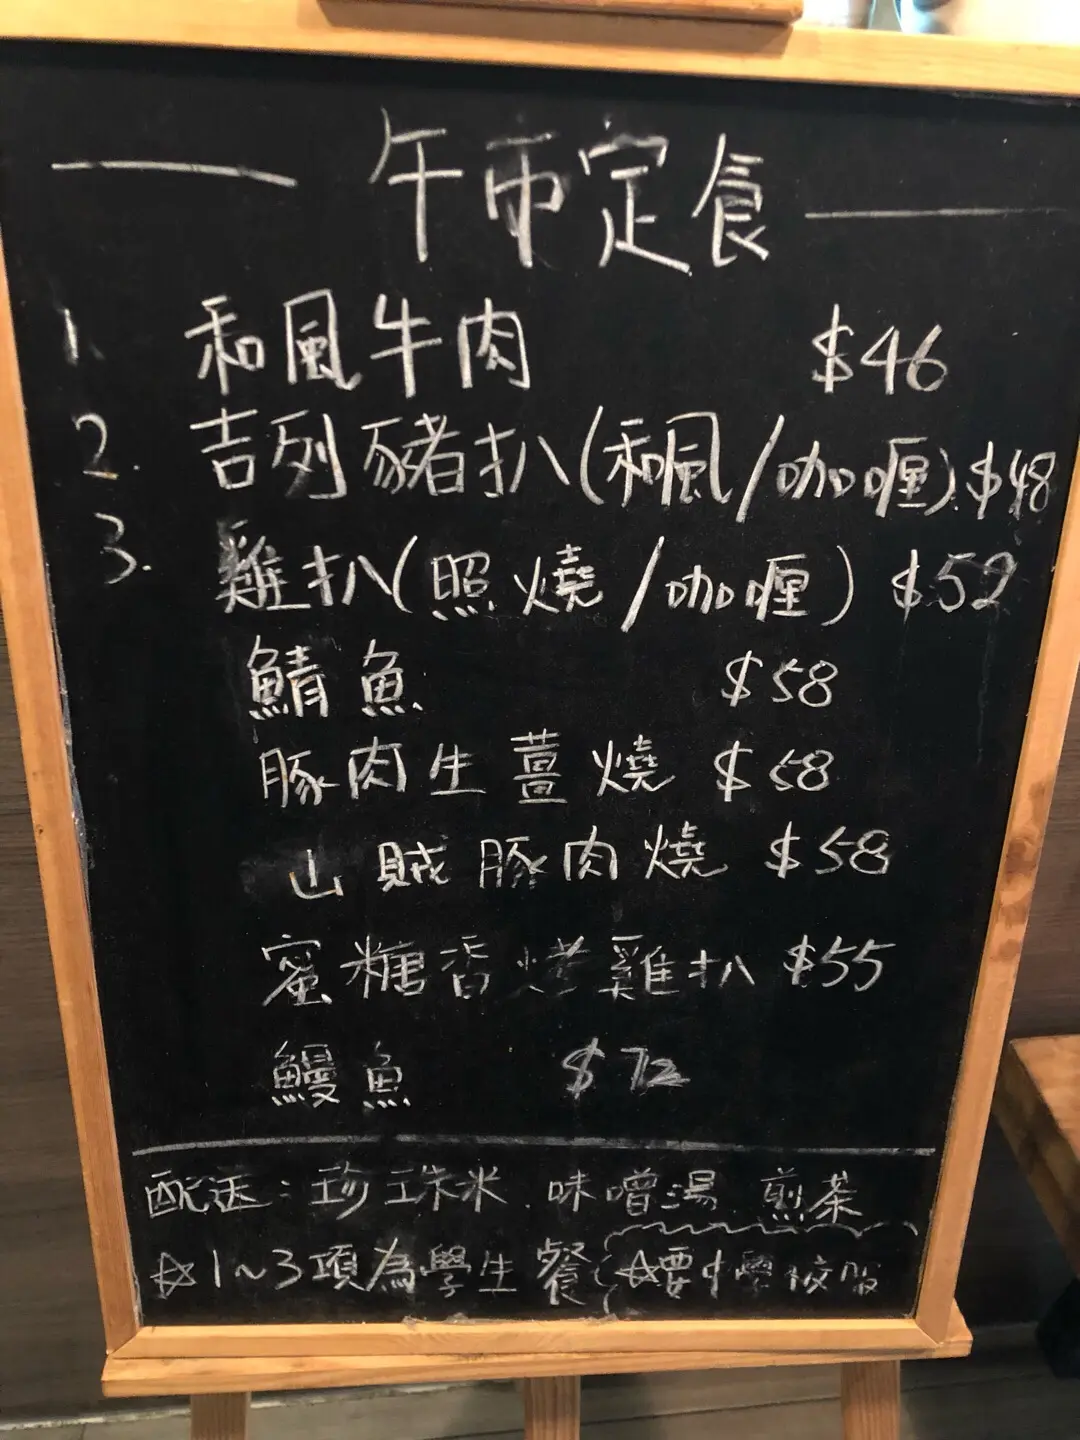 午市定食
1. 和風牛肉 $46
2. 吉列豬扒(和風/咖喱) $48
3. 雞扒(照燒/咖喱) $52
鯖魚 $58
豚肉生薑燒 $58
山賊豚肉燒 $58
蜜糖香烤雞扒 $55
鰻魚 $72
配送：珍珠米 味噌湯 煎茶
☆1~3項為學生餐 ☆要中學校服